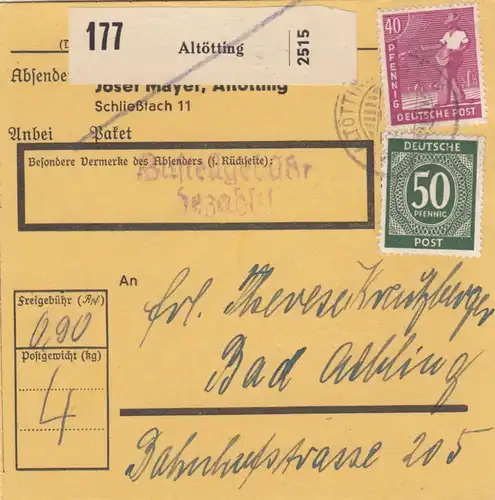 177
Altötting
2515
(D
Absende
Josef Mayer, Altötting
Schließfach 11
Anbei Paket
Besondere Vermerke des Absenders (s. Rückseite):
Zustellgebühr
bezahlt!
40
PFENNIG
DEUTSCHE POST
DEUTSCHE
50
PFENNIG
POST
An
Freigebühr (RM)
0,90
Postgewicht (kg)
4
Frl. Therese Kreuzberger
Bad Aibling
Bahnhofstrasse 205